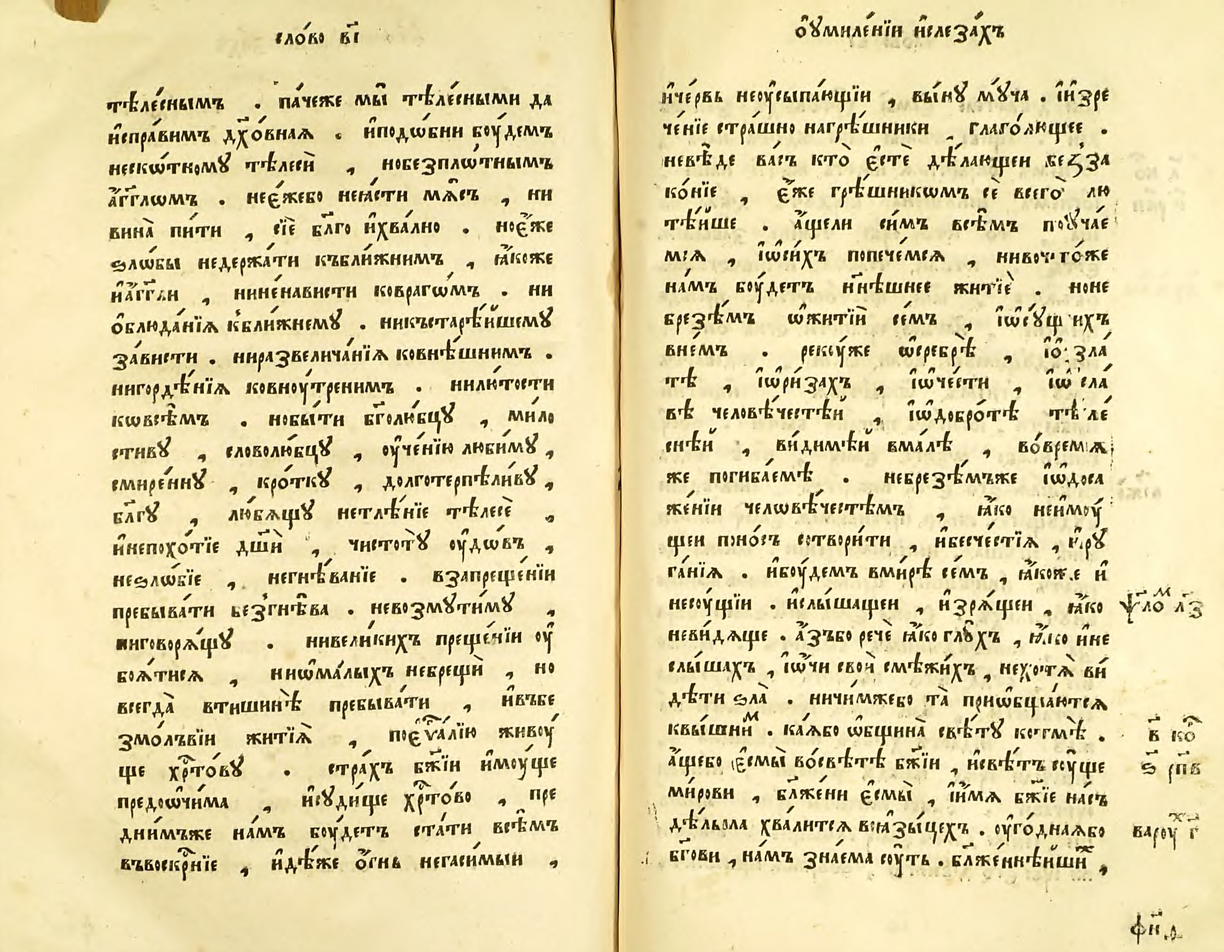 сло́во в҃і
тѣле́снымъ . па́чеже мы̀ тѣле́сными да
и҆спра́вимъ дх҃о́вная . и҆подѡ́бни боу́демъ
нескѡ́тному тѣлесѝ , нобезплѡ́тнымъ
а҆́гг҃лѡмъ . нее҆́жебо неꙗ҆́сти мѧ́съ , ни
вина̀ пи́ти , сїѐ бл҃го и҆хва́лно . ное҆́же
ѕло́бы недержа́ти къбли́жнимъ , ꙗ҆́коже
и҆а҆́гг҃ли , нинена́висти ковраго́мъ . ни
ѡ҆блюда́нїѧ кʼбли́жнему . никъстарѣ́йшему
за́висти . ниразвелича́нїѧ ковнѣ́шнимъ .
нигордѣ́нїѧ ковноу́тренимъ . нилю́тости
ковсѣ̑мъ . нобы́ти бг҃олю́бцу , ми́ло
стиву , словолю́бцу , оу҆че́нїю люби́му ,
смире́нну , кро́тку , долготерпѣли́ву ,
бл҃гу , лю́бѧщу нетлѣ́нїе тѣлесѐ ,
и҆непохо́тїе дш҃и , чистоту̀ оу҆́довъ ,
неѕло́бїе , негнѣ́ванїе . взапреще́нїи
пребыва́ти безʼгнѣ́ва . невозмути́му ,
ниговорѧ́щу . нивели́кихъ преще́нїи оу҆
боѧ́тисѧ , ниѡ҆ма́лыхъ небрещѝ , но
всегда̀ втишинѣ̀ пребыва́ти , и҆въбе
змо́лъвїи житїѧ̀ , пое҆ѵⷢ҇а́лїю живоу́
ще хрⷭ҇то́ву . стра́хъ бж҃їи и҆моу́ще
предоѡ҆чи́ма , и҆суди́ще хрⷭ҇то́во , пре
дни́мъже на́мъ боу́детъ ста́ти всѣ̑мъ
въвоскрⷭ҇нїе , и҆дѣ́же ѻ҆́гнь негаси́мыи ,
ѡ҆умиле́нїи и҆слеза́хъ
и҆че́рвь неоусыпа́ющїи , вы́ну му́ча . і҆и҆зре
че́нїе стра́шно нагрѣ́шники , глаго́лющее .
невѣ́де ва́съ кто̀ е҆стѐ дѣ́лающеи безза
ко́нїе , е҆́же грѣ́шникѡмъ сѐ всего̀ лю
тѣ́йше . а҆́щели си́мъ всѣ̑мъ поуча́е
мсѧ , і҆ѡ҆си́хъ попече́мсѧ , нивочто́же
на́мъ боу́детъ нн҃ѣшнее житїѐ . ноне
брезѣ́мъ ѡ҆житїѝ се́мъ , і҆ѡ҆су́щихъ
вне́мъ . рекоу́же ѡ҆сребрѣ̀ , і҆ѡ҆зла
тѣ , і҆ѡ҆ри́захъ , і҆ѡ҆че́сти , і҆ѡ҆ сла́
вѣ человѣ́честѣи , і҆ѡ҆добро́тѣ тѣле́
снѣй , ви́димѣй вма́лѣ , во́времѧ
же погиба́емѣ . небрезѣ́мъже і҆ѡ҆доса
же́нїи человѣ́честѣмъ , ꙗ҆́ко неи҆моу́
щеи поно́съ сотвори́ти , и҆бесче́стїѧ , и҆ру
га́нїѧ . и҆боу́демъ вми́рѣ се́мъ , ꙗ҆́коже и҆
несоу́щїи . и҆слы́шащеи , и҆зрѧ́щеи , ꙗ҆́ко
неви́дѧще . а҆́зъбо речѐ ꙗ҆́ко глу́хъ , ꙗ҆́ко и҆не
слы́шахъ , і҆ѡ҆́чи своѝ смѣжи́хъ , нехотѧ̀ ви́
дѣти ѕла̀ . ничи́мжебо та̀ приѡ҆бща́ютсѧ
квы́шниⷨ . ка́ѧбо ѡ҆́бщина свѣ́ту котмѣ̀ .
а҆́щебо е҆смы̀ восвѣ́тѣ бж҃їи , и҆свѣ́тъ соу́ще
ми́рови , бл҃же́ни е҆смы̀ , і҆и҆́мѧ бж҃їе на́съ
дѣ́льма хва́литсѧ воꙗ҆зы́цехъ . оу҆го́днаѧбо
бг҃ови , на́мъ зна́ема соу́ть . бл҃же́ннѣйшиⷯ ,
ѱало̀ⷨ лз
в҃ коⷬ
ѕ҃ рпв
вароуⷯ г҃